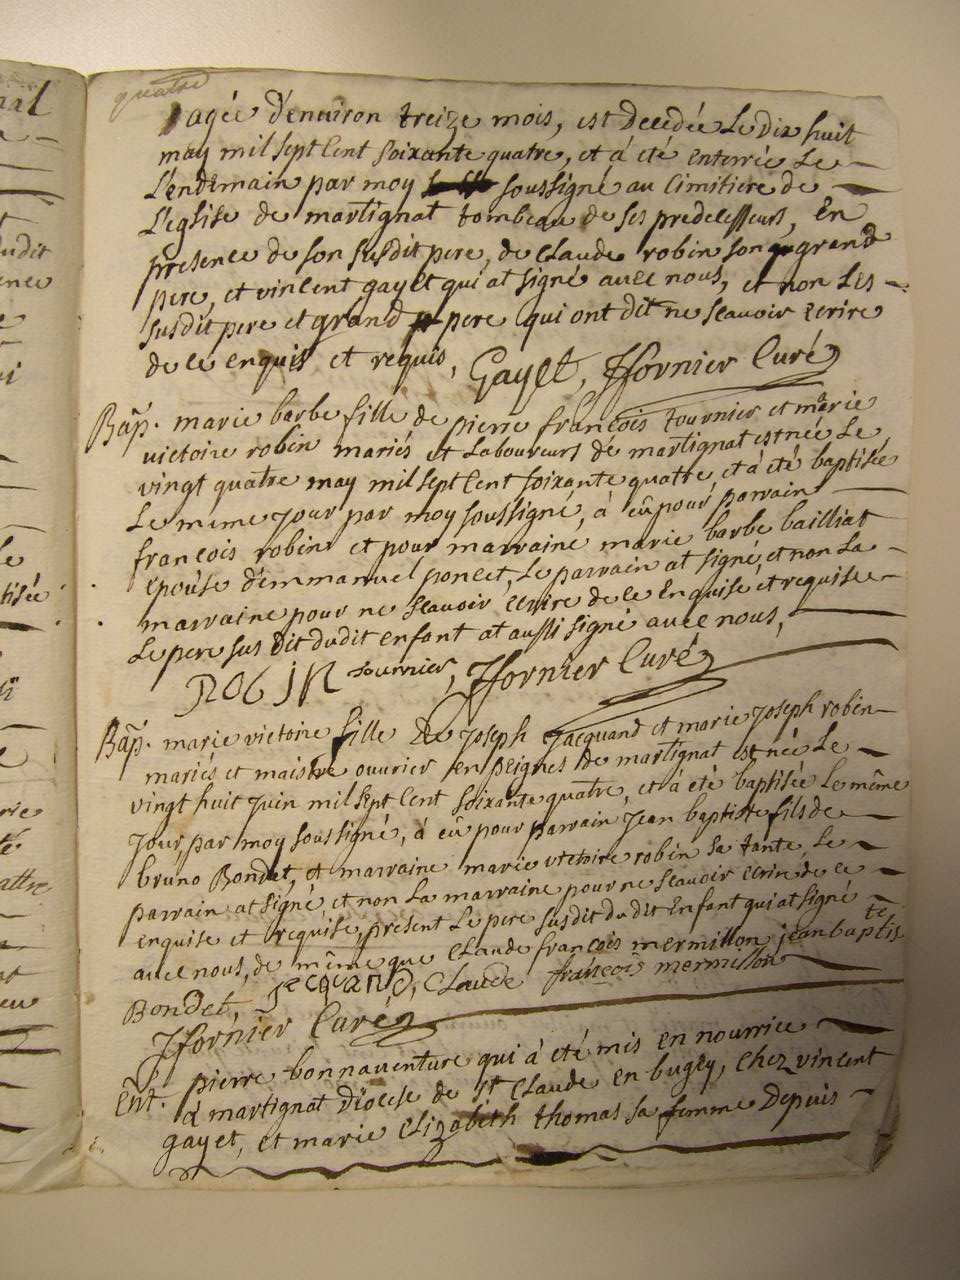 quatre
agée d'environ treize mois, est decedée Le Dix huit
may mil sept cent soixante quatre, et à eté enterrée Le
L'endemain par moy soussigné au cimitiere de
L'eglise de martignat tombeau de ses predecesseurs, En
presence de son susdit pere, de Claude robin son grand
pere, et vincent gayet qui at signé avec nous, et non Les
susdit pere et grand pere qui ont dit ne scavoir ecrire
de ce enquis et requis, Gayet, Jfornier Curé
Bap. marie barbe fille de pierre francois tournier et marie
victoire robin mariés et Laboureurs de martignat est née Le
vingt quatre may mil sept cent soixante quatre, et à été baptisée
Le même Jour par moy soussigné, à eû pour parrain
francois robin et pour marraine marie barbe bailliat
epouse d'emmanuel poncet, Le parrain at signé, et non La
marraine pour ne scavoir ecrire de ce Enquise et requise
Le pere sus Dit du dit enfant at aussi signé avec nous,
ROBIN tournier, Jfornier Curé
Bap. marie victoire fille De Joseph Jacquand et marie Joseph robin
mariés et maistre ouvrier en peignes de martignat est née Le
vingt huit Juin mil sept cent soixante quatre, et à été baptisée Le même
Jour, par moy soussigné, à eû pour parrain Jean baptiste fils de
bruno Bondet, et marraine marie victoire robin sa tante, Le
parrain at signé et non La marraine pour ne scavoir ecrire de ce
enquise et requise, présent Le pere susdit du dit Enfant qui at signé
avec nous, de même que Claude françois mermillon jean baptiste
Bondet, Jacquand, Claude françois mermillon
Jfornier Curé
Ent. pierre bonnaventure qui à été mis en nourrice
à martignat Diocese de st Claude en bugey, chez vincent
gayet, et marie elizabeth thomas sa femme Depuis